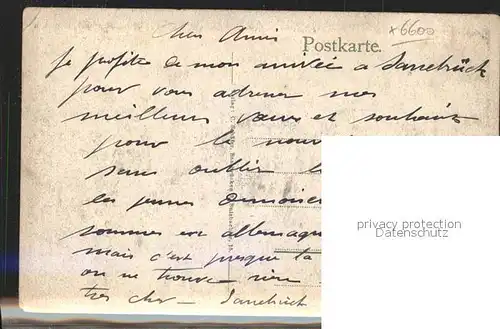 x6600
Chers Amis
Postkarte.
Je profite de mon arrivée a Sarrebrück
pour vous adresser mes
meilleurs vœux et souhaits
pour le
sans oublier
les jeunes
sommes en allemagne
mais c'est presque la
on ne trouve rien
tres cher – Sarrebrück
privacy protection